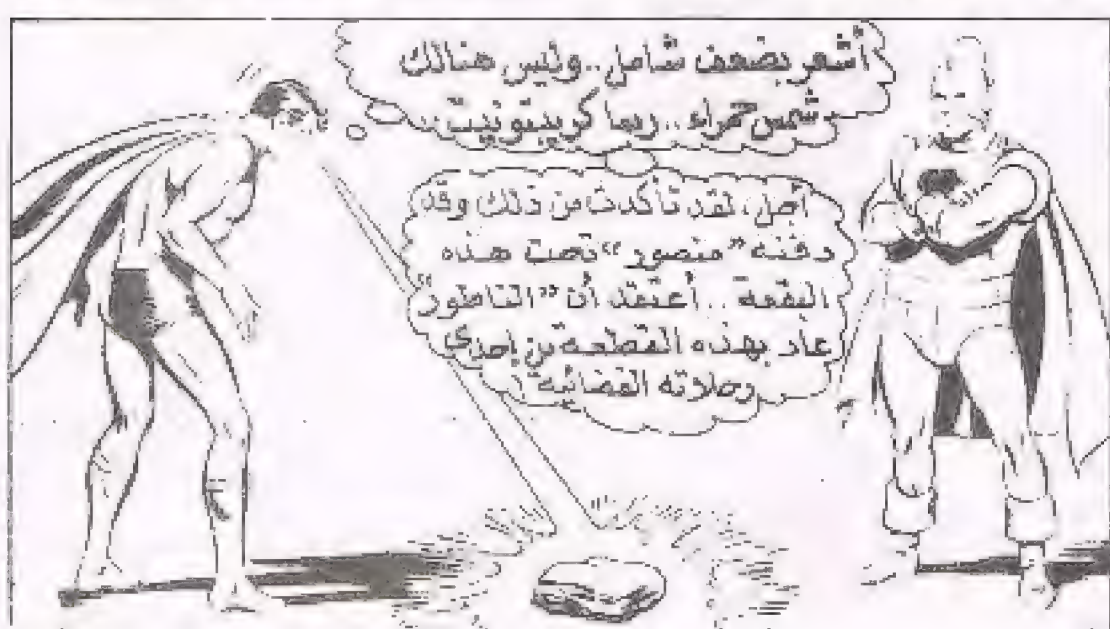 أشعر بضعف شامل..وليس هنالك
شمس حمراء..ربما كريبتونيت..
أجل، لقد تأكدت من ذلك وقد
دفنه "منصور" تحت هذه
البقعة..أعتقد أن "الناطور"
عاد بهذه القطعة من إحدى
رحلاته الفضائية!